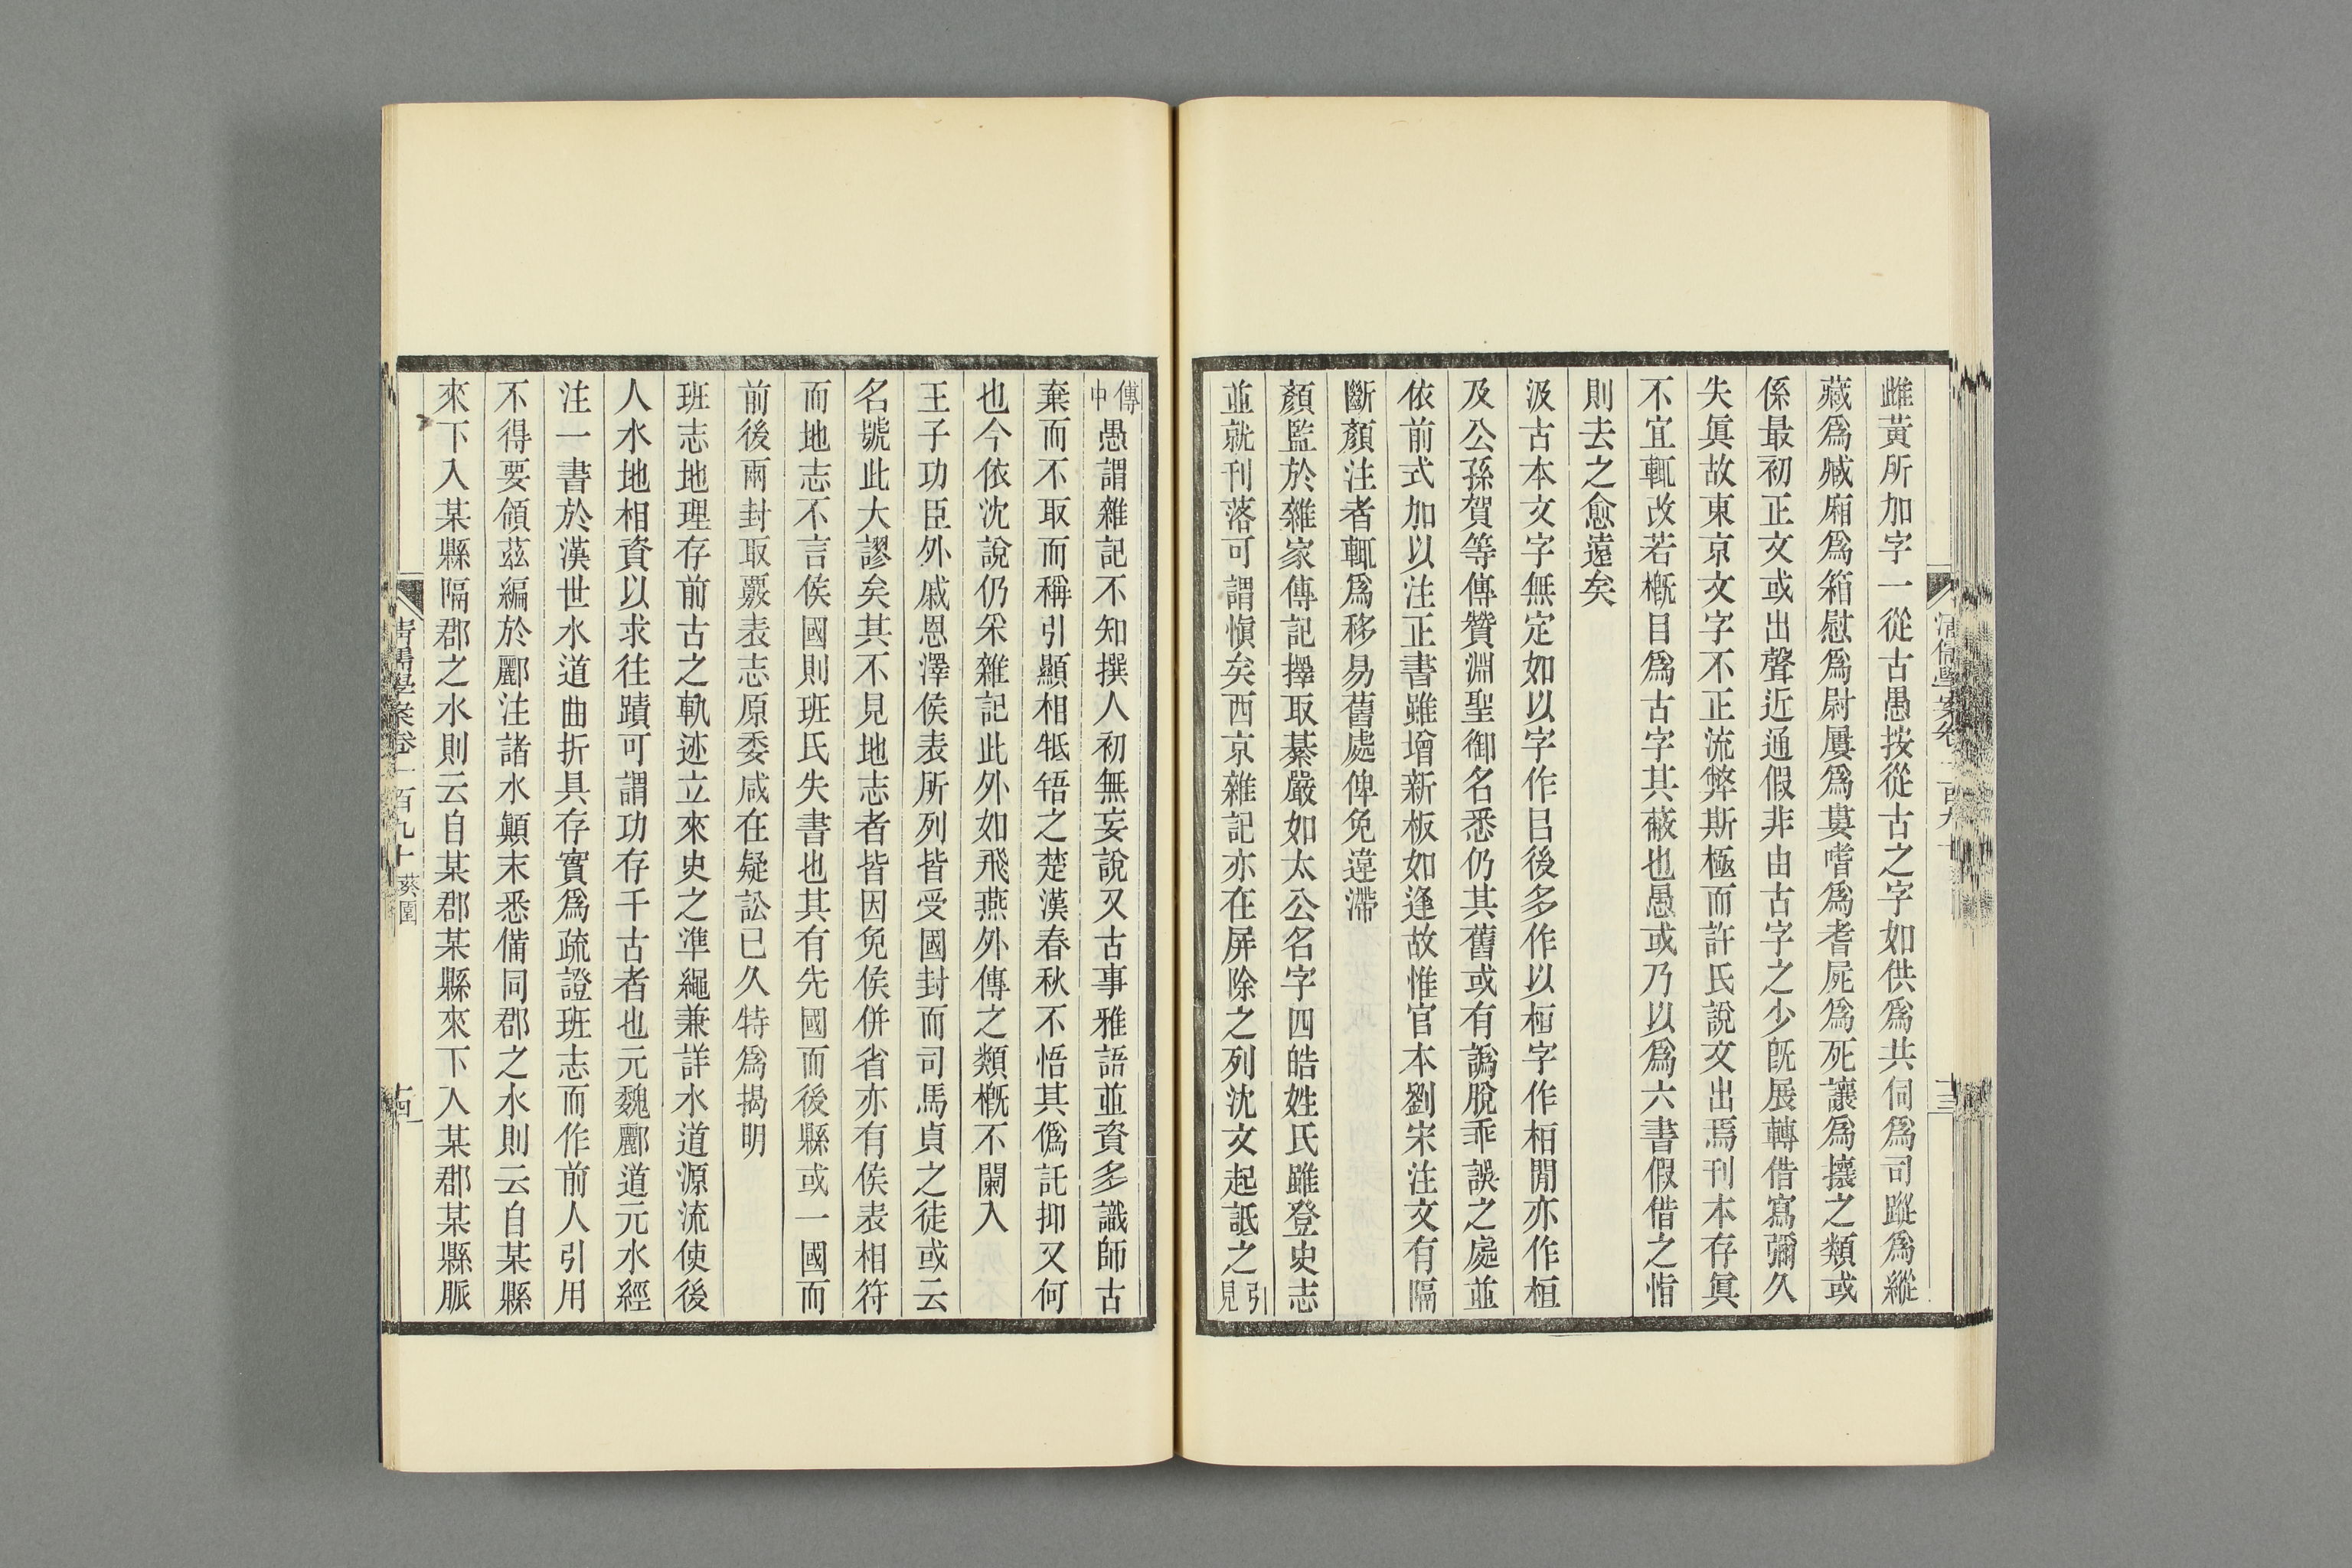 雌黃所加字一從古愚按從古之字如供爲共伺爲司蹤爲縱
藏爲臧廂爲箱慰爲尉屢爲婁嗜爲耆屍爲死讓爲攘之類或
係最初正文或出聲近通假非由古字之少旣展轉借寫彌久
失眞故東京文字不正流弊斯極而許氏說文出焉刊本存眞
不宜輒改若槪目爲古字其蔽也愚或乃以爲六書假借之恉
則去之愈遠矣
汲古本文字無定如以字作㠯後多作以桓字作栢閒亦作桓
及公孫賀等傳贊淵聖御名悉仍其舊或有譌脫乖誤之處並
依前式加以注正書雖增新板如逢故惟官本劉宋注文有隔
斷顏注者輒爲移易舊處俾免違滯
顏監於雜家傳記擇取綦嚴如太公名字四皓姓氏雖登史志
並就刊落可謂愼矣西京雜記亦在屏除之列沈文起詆之引見
傳中愚謂雜記不知撰人初無妄說又古事雅語並資多識師古
棄而不取而稱引顯相牴牾之楚漢春秋不悟其僞託抑又何
也今依沈說仍采雜記此外如飛燕外傳之類槪不闌入
王子功臣外戚恩澤侯表所列皆受國封而司馬貞之徒或云
名號此大謬矣其不見地志者皆因免侯併省亦有侯表相符
而地志不言侯國則班氏失書也其有先國而後縣或一國而
前後兩封取覈表志原委咸在疑訟已久特爲揭明
班志地理存前古之軌迹立來史之準繩兼詳水道源流使後
人水地相資以求往蹟可謂功存千古者也元魏酈道元水經
注一書於漢世水道曲折具存實爲疏證班志而作前人引用
不得要領茲編於酈注諸水顚末悉備同郡之水則云自某縣
來下入某縣隔郡之水則云自某郡某縣來下入某郡某縣脈
清儒學案卷一百九十 葵園
十四
十三